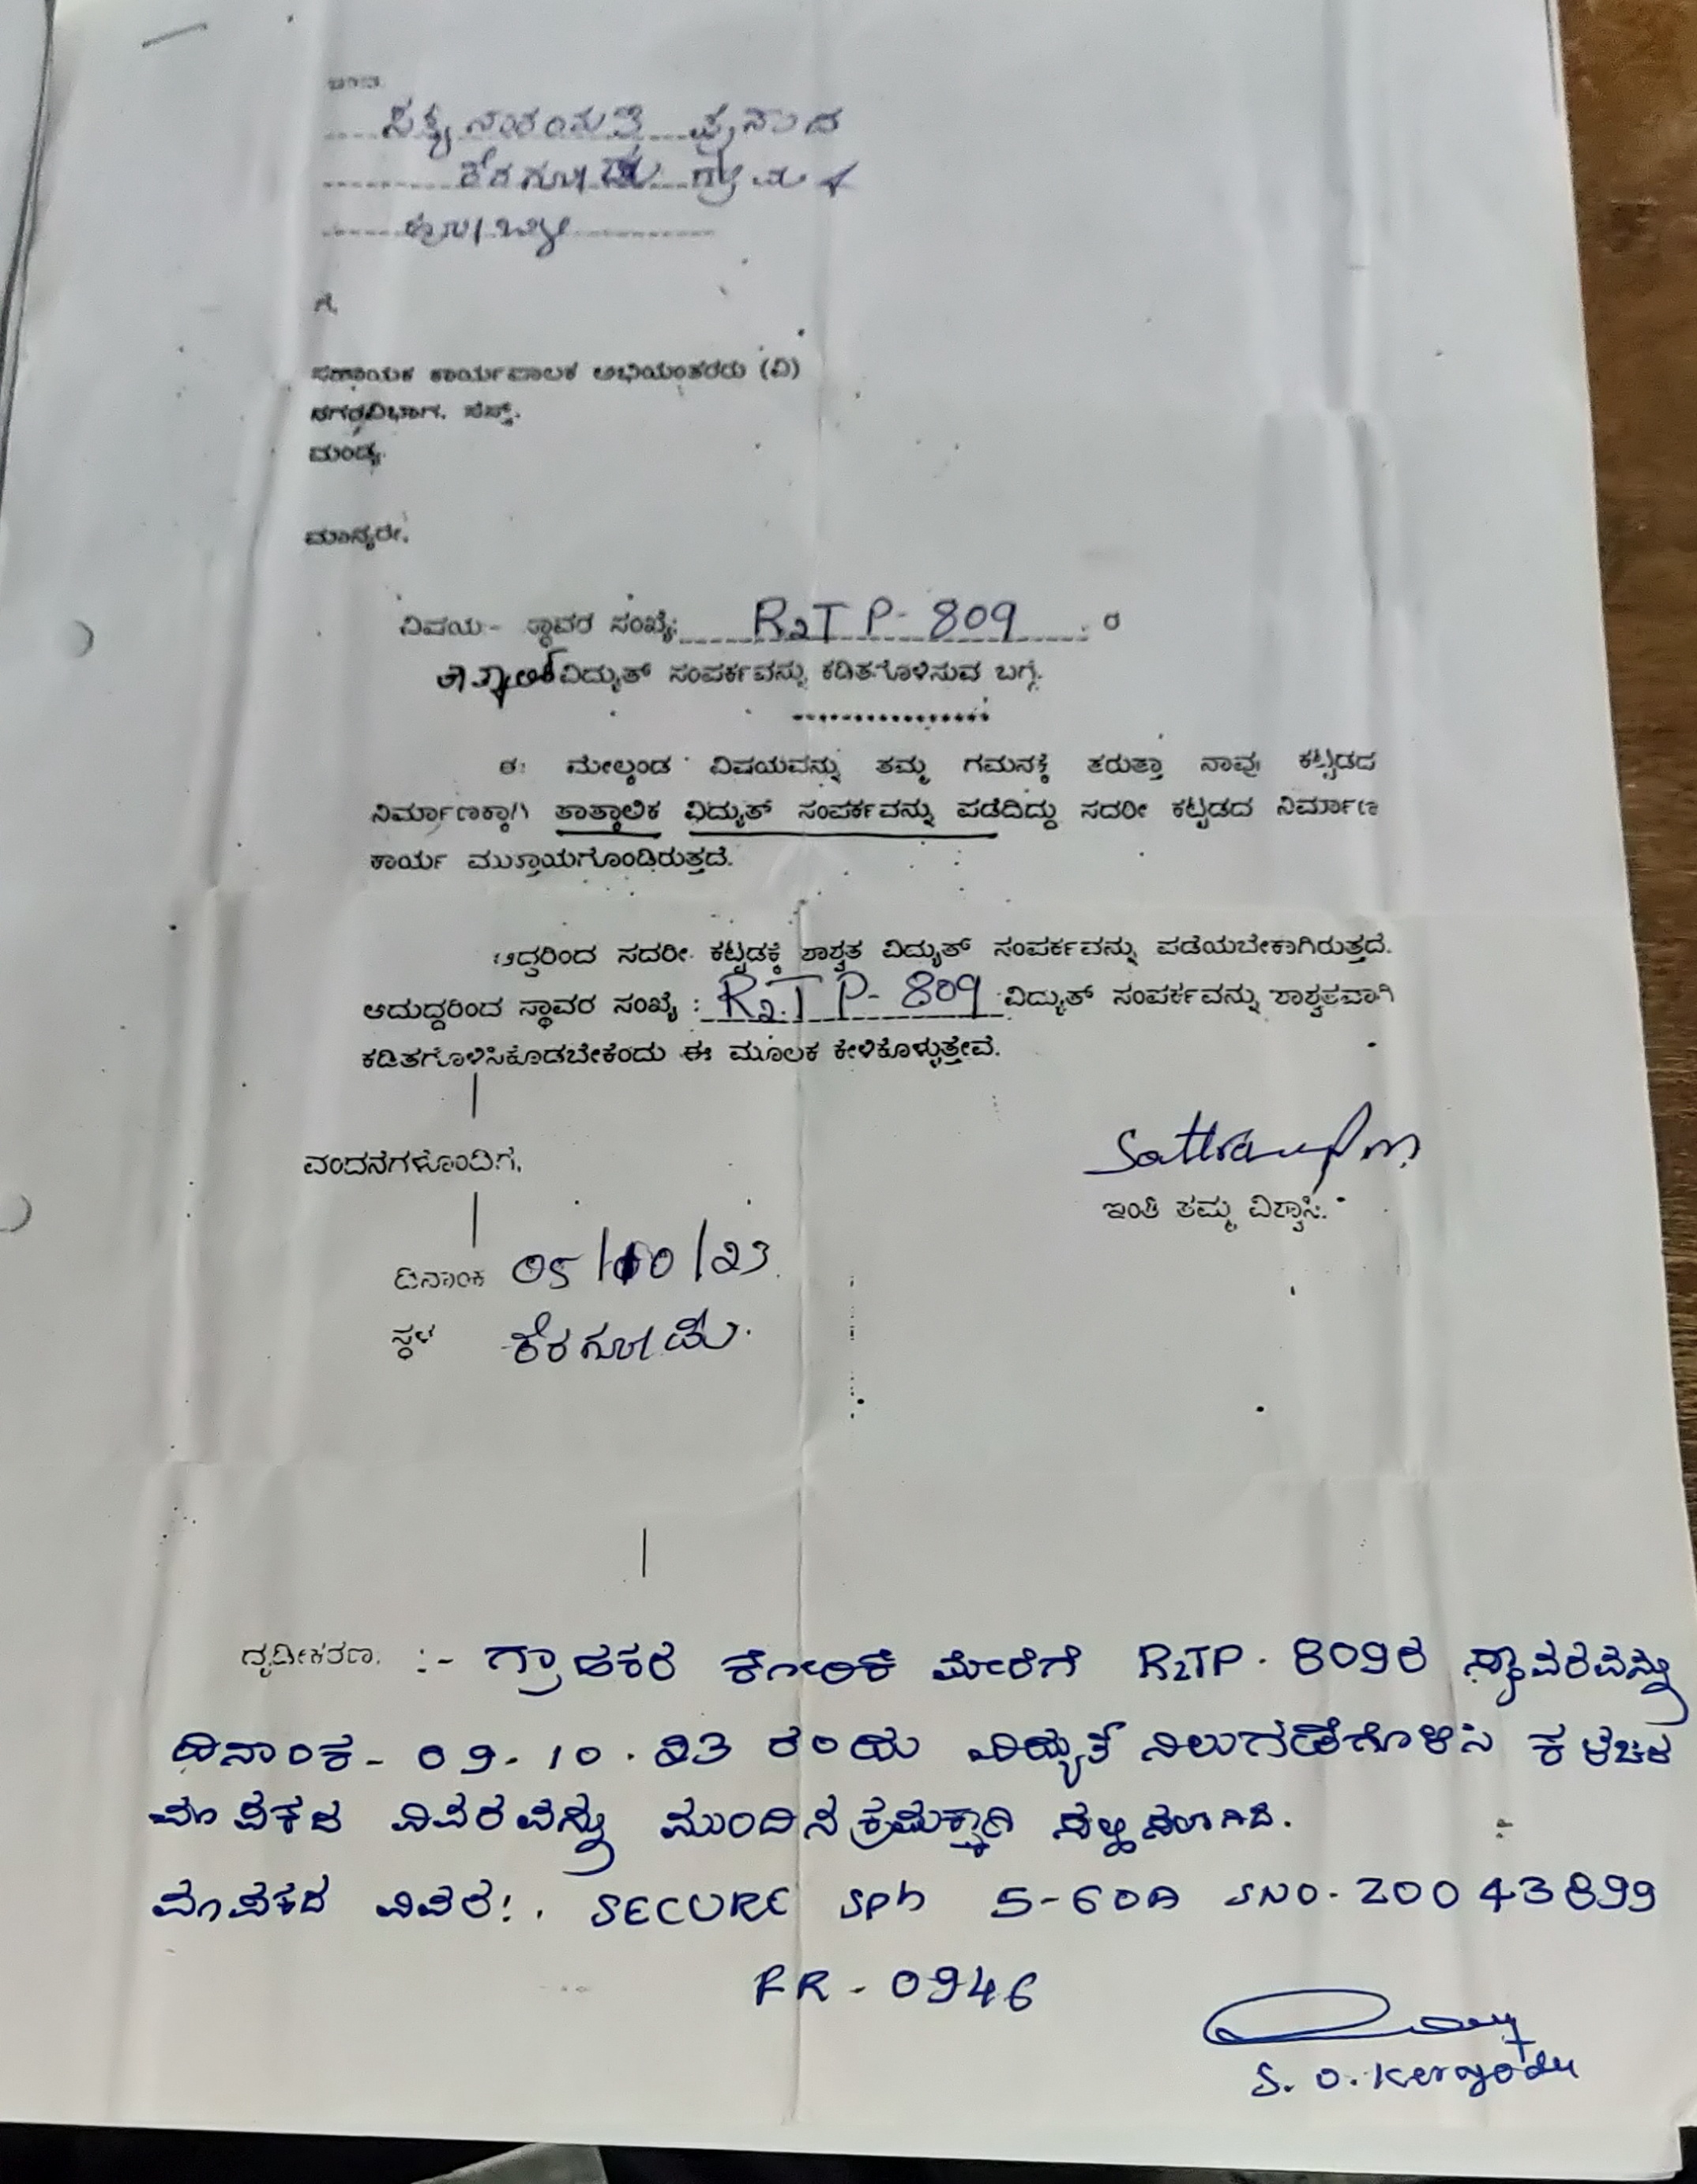 ಇಂದ.
ಸತ್ಯನಾರಾಯಣ ಪ್ರಸಾದ
ಕೆರಗೋಡು ಗ್ರಾಮ
ಗೆ,
ಸಹಾಯಕ ಕಾರ್ಯಪಾಲಕ ಅಭಿಯಂತರರು (ವಿ)
ನಗರವಿಭಾಗ, ಸೆಸ್ಕ್.
ಮಂಡ್ಯ.
ಮಾನ್ಯರೇ,
ವಿಷಯ:- ಸ್ಥಾವರ ಸಂಖ್ಯೆ: R2TP-809 ರ
ವಿದ್ಯುತ್ ಸಂಪರ್ಕವನ್ನು ಕಡಿತಗೊಳಿಸುವ ಬಗ್ಗೆ.
ಈ ಮೇಲ್ಕಂಡ ವಿಷಯವನ್ನು ತಮ್ಮ ಗಮನಕ್ಕೆ ತರುತ್ತಾ ನಾವು ಕಟ್ಟಡದ
ನಿರ್ಮಾಣಕ್ಕಾಗಿ ತಾತ್ಕಾಲಿಕ ವಿದ್ಯುತ್ ಸಂಪರ್ಕವನ್ನು ಪಡೆದಿದ್ದು ಸದರೀ ಕಟ್ಟಡದ ನಿರ್ಮಾಣ
ಕಾರ್ಯ ಮುಕ್ತಾಯಗೊಂಡಿರುತ್ತದೆ.
ಆದ್ದರಿಂದ ಸದರೀ ಕಟ್ಟಡಕ್ಕೆ ಶಾಶ್ವತ ವಿದ್ಯುತ್ ಸಂಪರ್ಕವನ್ನು ಪಡೆಯಬೇಕಾಗಿರುತ್ತದೆ.
ಆದುದ್ದರಿಂದ ಸ್ಥಾವರ ಸಂಖ್ಯೆ : R2TP-809 ವಿದ್ಯುತ್ ಸಂಪರ್ಕವನ್ನು ಶಾಶ್ವತವಾಗಿ
ಕಡಿತಗೊಳಿಸಿಕೊಡಬೇಕೆಂದು ಈ ಮೂಲಕ ಕೇಳಿಕೊಳ್ಳುತ್ತೇವೆ.
ವಂದನೆಗಳೊಂದಿಗೆ,
ಇಂತಿ ತಮ್ಮ ವಿಶ್ವಾಸಿ.
ದಿನಾಂಕ 05/10/23.
ಸ್ಥಳ ಕೆರಗೋಡು.
ದೃಢೀಕರಣ. :- ಗ್ರಾಹಕರ ಕೋರಿಕೆ ಮೇರೆಗೆ R2TP. 809ರ ಸ್ಥಾವರವನ್ನು
ದಿನಾಂಕ- 09-10.23 ರಂದು ವಿದ್ಯುತ್ ನಿಲುಗಡೆಗೊಳಿಸಿ ಕಳಚಿದ
ಮಾಪಕದ ವಿವರವನ್ನು ಮುಂದಿನ ಕ್ರಮಕ್ಕಾಗಿ ಸಲ್ಲಿಸಲಾಗಿದೆ.
ಮಾಪಕದ ವಿವರ:. SECURE SPh 5-60A SNO-20043899
FR - 0946
S. O. Keragodu